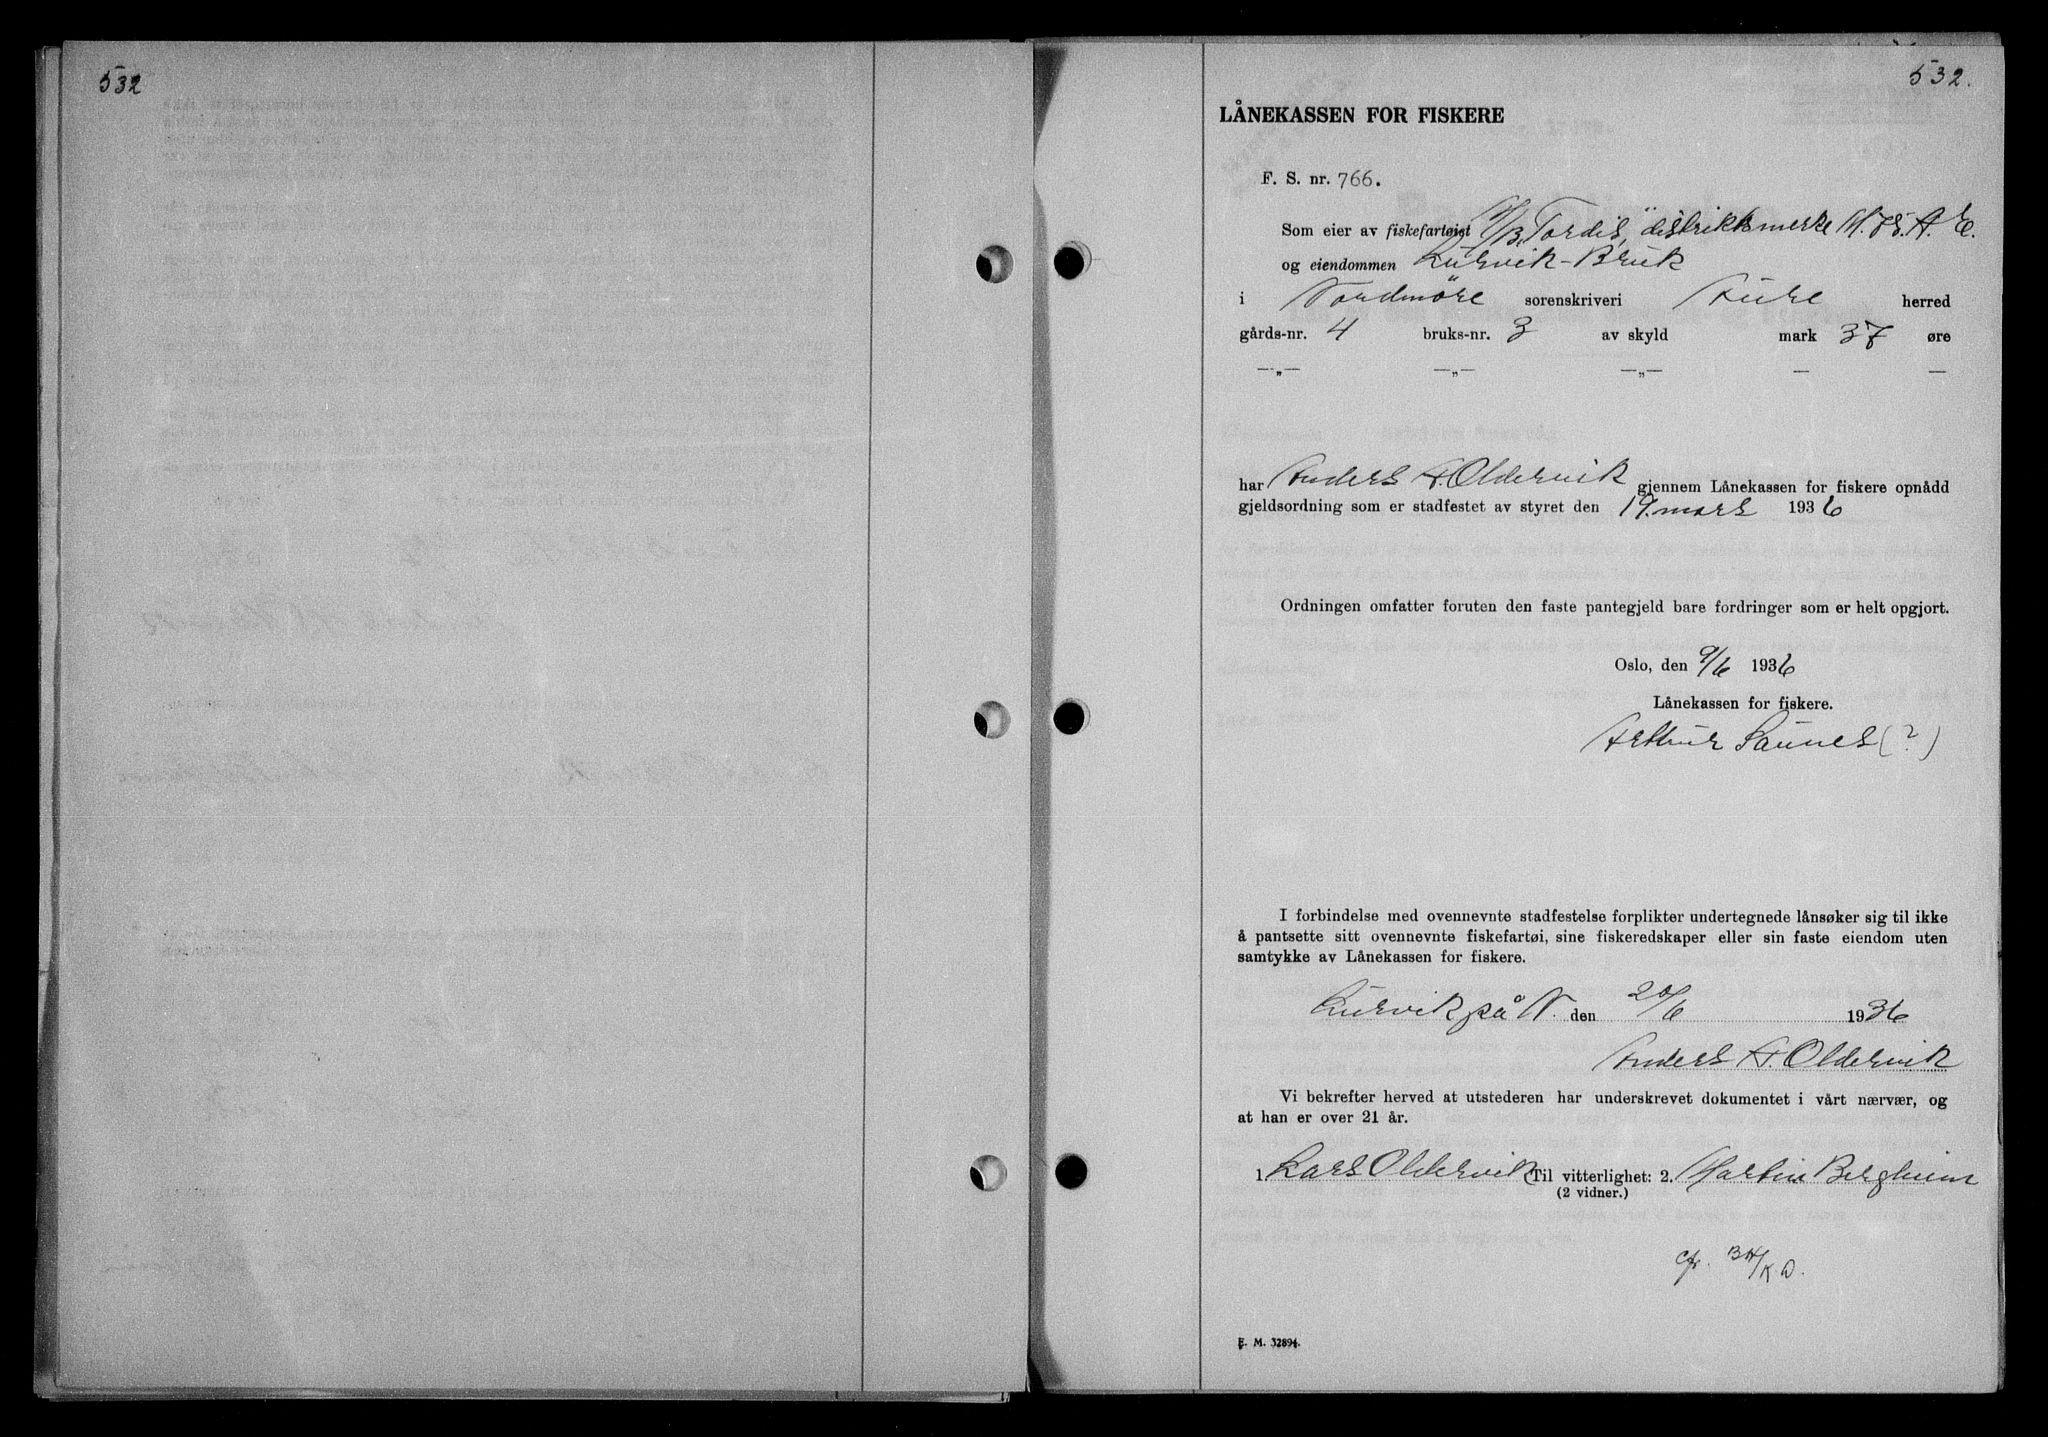 532
532.
LÅNEKASSEN FOR FISKERE
F. S. nr. 766.
Som eier av fiskefartøiet M/B „Tordis" distriktsmerke M. 75. A. E.
og eiendommen Lurvik-Bruk
i Nordmöre sorenskriveri Aure herred
gårds-nr. 4 bruks-nr. 3 av skyld mark 37 øre
—„— —„— —„— — —
har Anders A. Oldervik gjennem Lånekassen for fiskere opnådd
gjeldsordning som er stadfestet av styret den 19. mars 1936
Ordningen omfatter foruten den faste pantegjeld bare fordringer som er helt opgjort.
Oslo, den 9/6 1936
Lånekassen for fiskere.
Arthur Saunes (?)
I forbindelse med ovennevnte stadfestelse forplikter undertegnede lånsøker sig til ikke
å pantsette sitt ovennevnte fiskefartøi, sine fiskeredskaper eller sin faste eiendom uten
samtykke av Lånekassen for fiskere.
Lurvik på N. den 20/6 1936
Anders A. Oldervik
Vi bekrefter herved at utstederen har underskrevet dokumentet i vårt nærvær, og
at han er over 21 år.
1. Lars Oldervik Til vitterlighet: 2. Martin Bergheim
(2 vidner.)
cfr. BH/KD.
E. M. 32894.